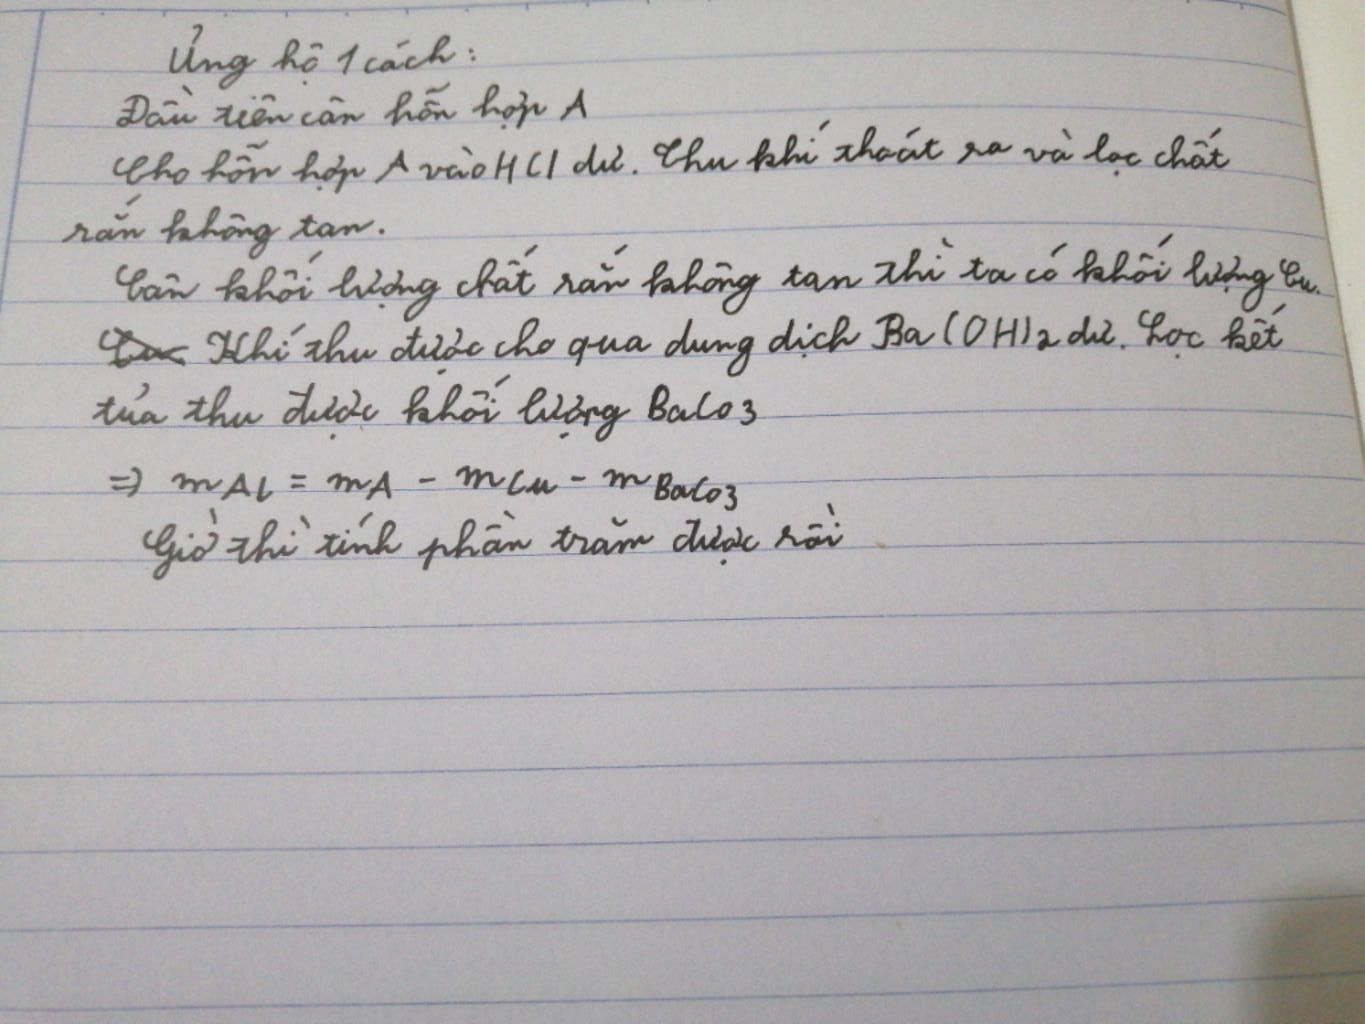 Ủng hộ 1 cách:
Đầu tiên cân hỗn hợp A
Cho hỗn hợp A vào HCl dư. Thu khí thoát ra và lọc chất
rắn không tan.
Cân khối lượng chất rắn không tan thì ta có khối lượng Cu.
Khí thu được cho qua dung dịch Ba(OH)2 dư. Lọc kết
tủa thu được khối lượng BaCO3
=> mAl = mA - mCu - mBaCO3
Giờ thì tính phần trăm được rồi